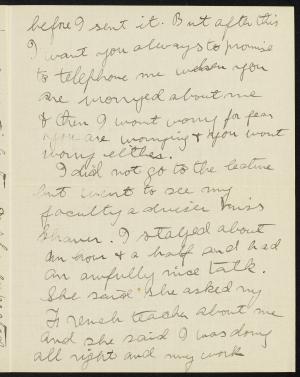 before I sent it. But after this
I want you always to promise
to telephone me when you
are worryed about me
& then I wont worry for fear
you are worrying & you wont
worry eithes.
I did not go to the lecture
but went to see my
faculty adviser Miss
Shaver. I stayed about
an hour & a half and had
an awfully nice talk.
She said she asked my
French teacher about me
and she said I was doing
all right and my work